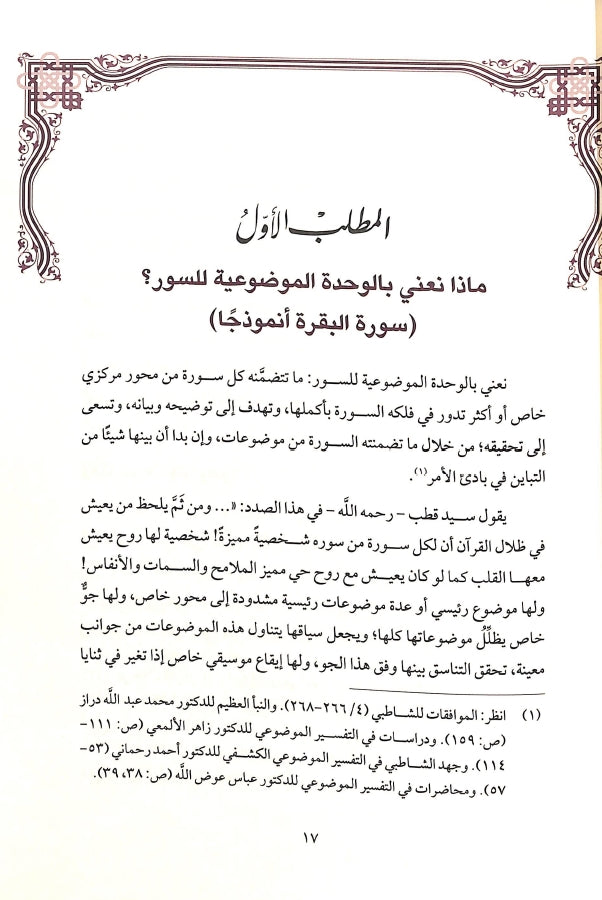 المطلب الأوّلُ
ماذا نعني بالوحدة الموضوعية للسور؟
(سورة البقرة أنموذجًا)
نعني بالوحدة الموضوعية للسور: ما تتضمَّنه كل سورة من محور مركزي
خاص أو أكثر تدور في فلكه السورة بأكملها، وتهدف إلى توضيحه وبيانه، وتسعى
إلى تحقيقه؛ من خلال ما تضمنته السورة من موضوعات، وإن بدا أن بينها شيئًا من
التباين في بادئ الأمر(١).
يقول سيد قطب – رحمه اللَّه – في هذا الصدد: «... ومن ثَمَّ يلحظ من يعيش
في ظلال القرآن أن لكل سورة من سوره شخصيةً مميزةً! شخصية لها روح يعيش
معها القلب كما لو كان يعيش مع روح حي مميز الملامح والسمات والأنفاس!
ولها موضوع رئيسي أو عدة موضوعات رئيسية مشدودة إلى محور خاص، ولها جوٌّ
خاص يظلِّلُ موضوعاتها كلها؛ ويجعل سياقها يتناول هذه الموضوعات من جوانب
معينة، تحقق التناسق بينها وفق هذا الجو، ولها إيقاع موسيقي خاص إذا تغير في ثنايا
(١) انظر: الموافقات للشاطبي (٤/ ٢٦٦-٢٦٨). والنبأ العظيم للدكتور محمد عبد اللَّه دراز
(ص: ١٥٩). ودراسات في التفسير الموضوعي للدكتور زاهر الألمعي (ص: ١١١-
١١٤). وجهد الشاطبي في التفسير الموضوعي الكشفي للدكتور أحمد رحماني (٥٣-
٥٧). ومحاضرات في التفسير الموضوعي للدكتور عباس عوض اللَّه (ص: ٣٨، ٣٩).
١٧